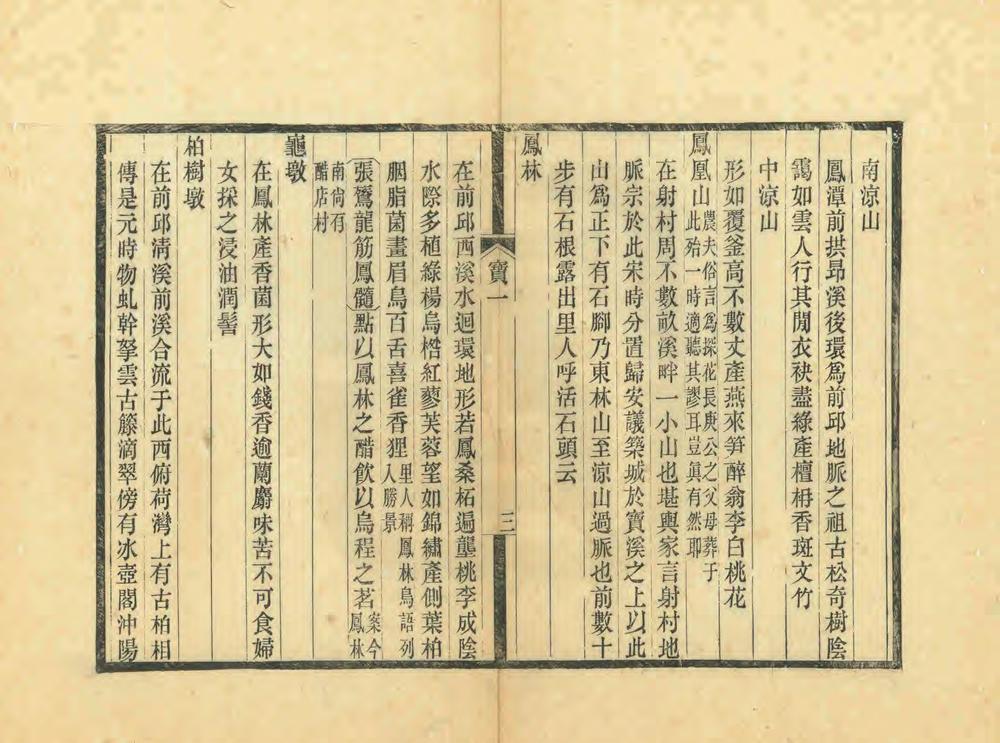 南涼山
鳳潭前拱昻溪後環爲前邱地脈之祖古松奇樹陰
靄如雲人行其閒衣袂盡綠產檀栴香斑文竹
中涼山
形如覆釜高不數丈產燕來笋醉翁李白桃花
鳳凰山農夫俗言爲探花長庚公之父母葬于
此殆一時適聽其謬耳豈眞有然耶
在射村周不數畝溪畔一小山也堪輿家言射村地
脈宗於此宋時分置歸安議築城於寶溪之上以此
山爲正下有石腳乃東林山至涼山過脈也前數十
步有石根露出里人呼活石頭云
鳳林
寶一
三
在前邱西溪水迴環地形若鳳桑柘遍壟桃李成陰
水際多植綠楊烏桕紅蓼芙蓉望如錦繡產側葉柏
胭脂菌畫眉鳥百舌喜雀香狸里人稱鳳林鳥語列
入勝景
張騭龍筋鳳髓點以鳳林之醋飮以烏程之茗案今
鳳林
南尙有
醋店村
龜墩
在鳳林產香菌形大如錢香逾蘭麝味苦不可食婦
女採之浸油潤髻
柏樹墩
在前邱淸溪前溪合流于此西俯荷灣上有古柏相
傳是元時物虬幹拏雲古籐滴翠傍有冰壺閣沖陽